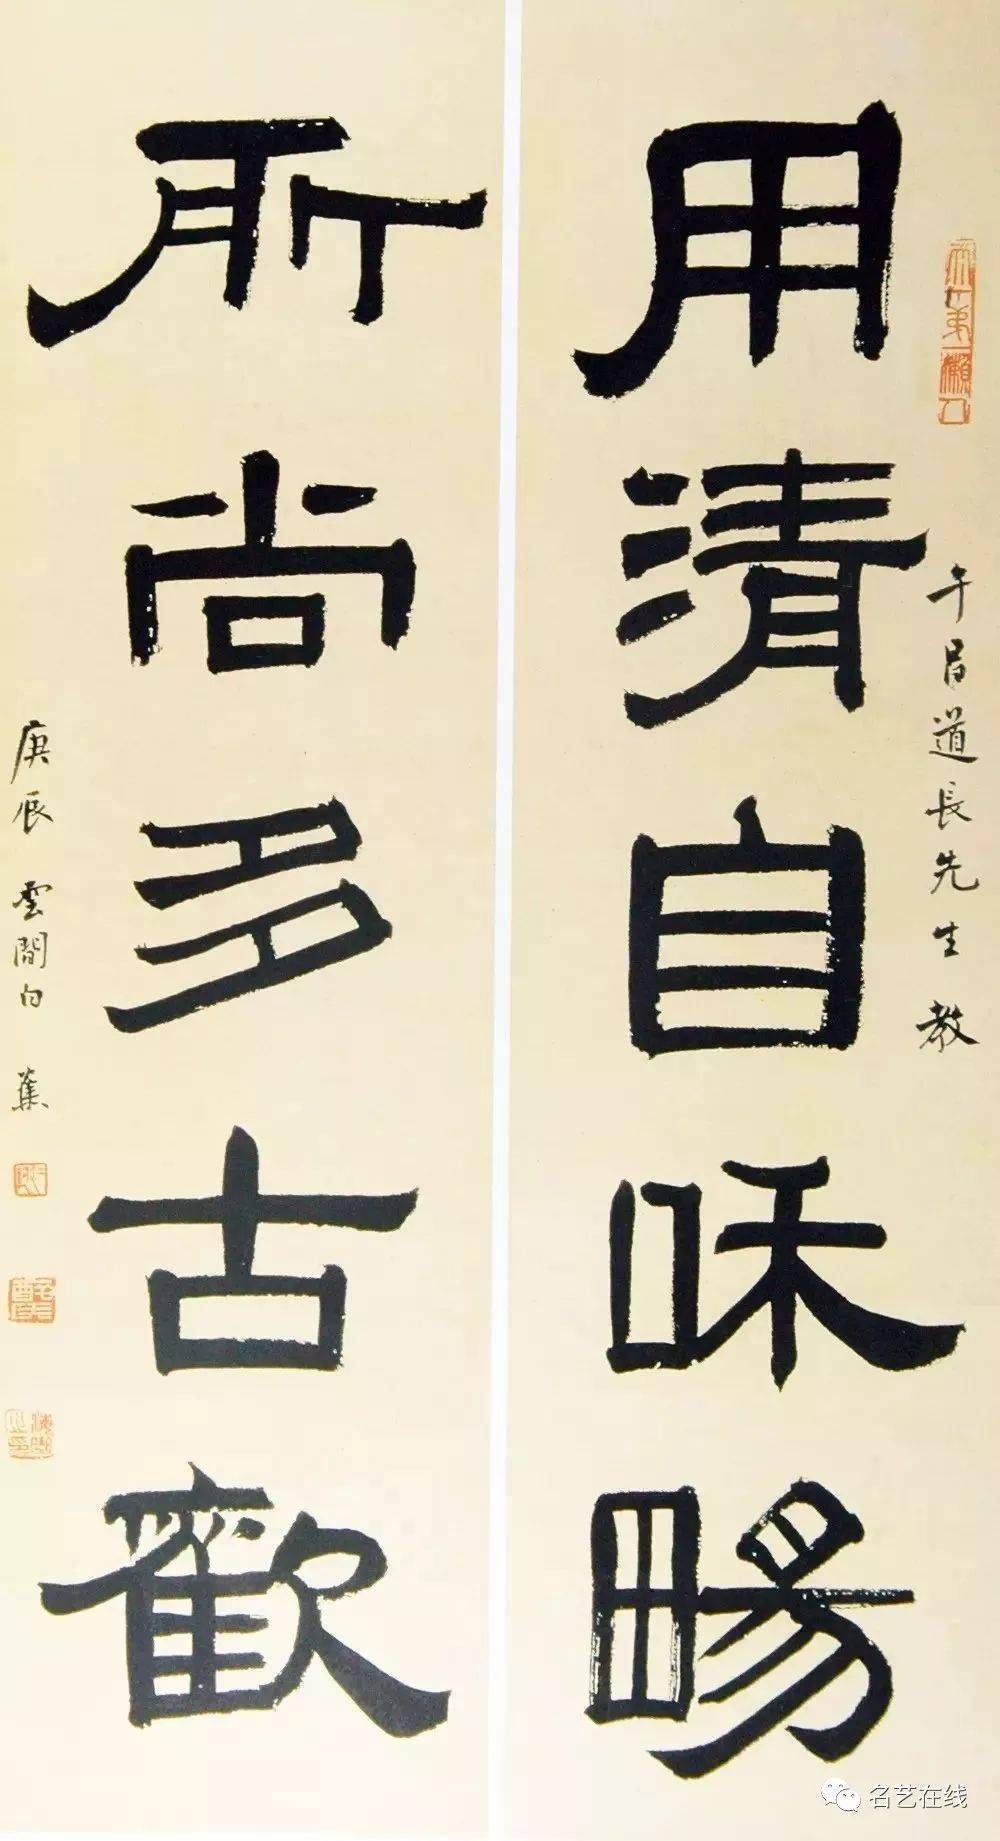 午昌道長先生 教
用清自咊畼
所尚多古歡
庚辰 雲間白蕉
名艺在线